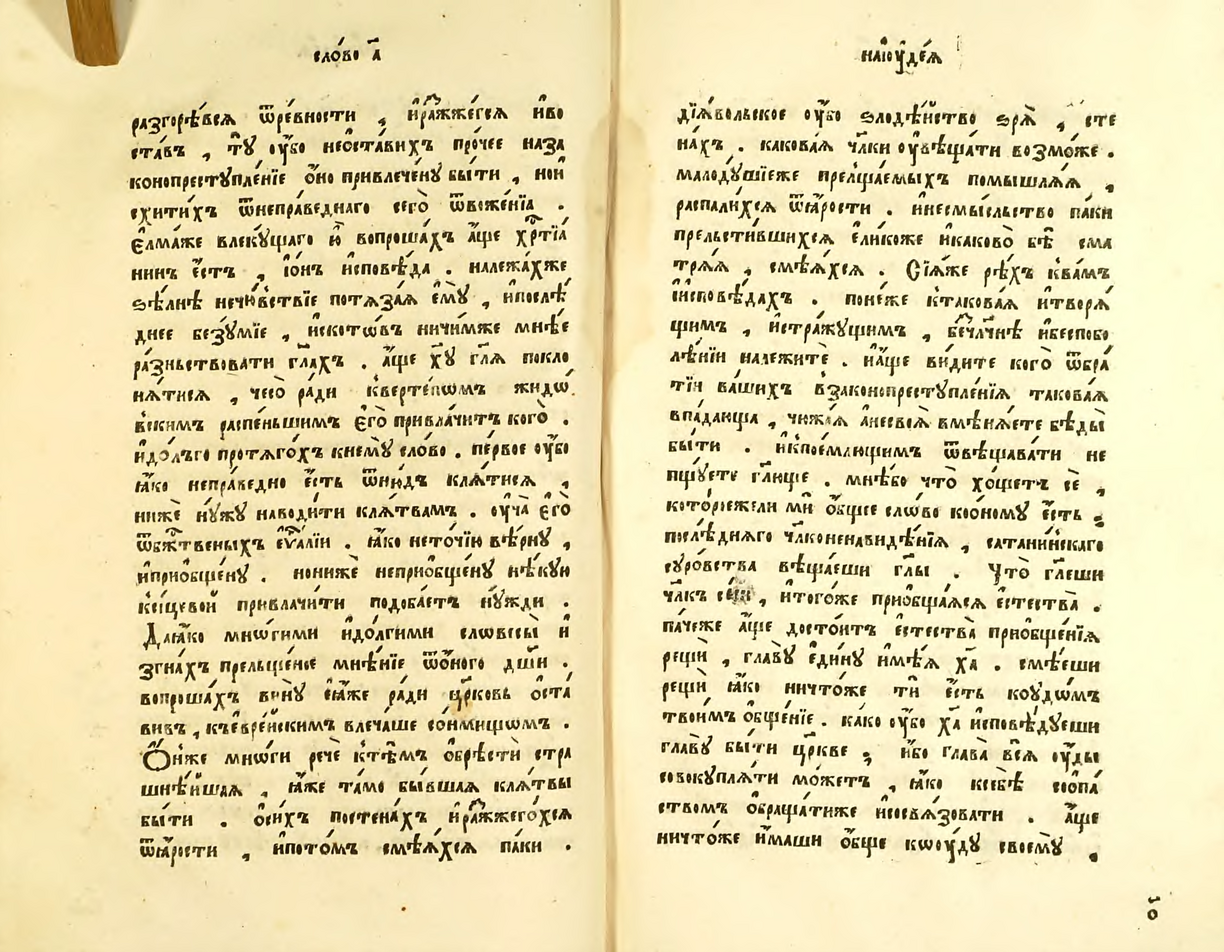 сло́во а҃
разгорѣ́вся ѿре́вности , и҆ражже́гся и҆во
ста́въ , тꙋ̀ оу҆́бо неѡста́вихъ про́чее наза
конопрестꙋпле́нїе ѻ҆́но привлече́нꙋ бы́ти , нои
схити́хъ ѿнепра́веднаго сего̀ ѿвоже́нїа .
є҆лма́же влекꙋ́щаго ю҆̀ вопроша́хъ а҆́ще хрⷭ҇тїа
нинъ є҆́сть , і҆о́нъ и҆сповѣ́да . належа́хже
ѕѣ́лнѣ нечю́вствїе потѧза́ѧ є҆мꙋ̀ , и҆послѣ́
днее безꙋ́мїе , и҆скотѡ́въ ничи́мже мнѣ́е
ра́знствовати гл҃ахъ . а҆́ще хꙋ҃ гл҃ѧ покло
нѧ́тисѧ , чесо̀ ра́ди квертепѡ́мъ жидѡ́
вскимъ распе́ньшимъ є҆го̀ привлачи́тъ кого̀ .
и҆до́лъго протѧго́хъ кнемꙋ̀ сло́во . пе́рвое оу҆́бо
ꙗ҆́ко непра́ведно є҆́сть ѿню́дъ клѧ́тисѧ ,
нижѐ нꙋ́жꙋ наводи́ти клѧ́твамъ . оу҆ча̀ є҆го̀
ѿбжⷭ҇твеныхъ є҆ѵⷢ҇алїи . ꙗ҆́ко нето́чїю вѣ́рнꙋ ,
и҆приѡбще́нꙋ . нонижѐ неприѡбще́нꙋ нѣ́кꙋю
ксицево́й привлачи́ти подоба́етъ нꙋ́жди .
Даꙗ҆́ко мно́гими и҆до́лгими словесы̀ и҆
згна́хъ прельще́ное мнѣ́нїе ѿѻ҆́ного дш҃и .
вопроша́хъ винꙋ̀ є҆ѧ́же ра́ди цр҃ковь ѡ҆ста́
вивъ , къевре́йскимъ влеча́ше со́нмищѡмъ .
Ѻ҆́нже мно́ги речѐ ктѣ́мъ ѡ҆брѣстѝ стра
шнѣ́йшаѧ , ꙗ҆́же та́мо бы́вшаѧ клѧ́твы
бы́ти . ѡ҆си́хъ постена́хъ и҆ражжего́хсѧ
ѿꙗ҆́рости , и҆пото́мъ смѣѧ́хсѧ па́ки .
наїꙋде́ѧ
дїѧ́вольское оу҆́бо ѕлодѣ́йство ѕрѧ̀ , сте
на́хъ . какова́ѧ чл҃ки оу҆вѣща́ти возмо́же .
малодꙋ́шїеже прельща́емыхъ помышлѧ́ѧ ,
распали́хсѧ ѿꙗ҆́рости . и҆несмы́сльство па́ки
прельсти́вшихсѧ є҆ли́коже и҆каково̀ бѣ̀ сма
трѧ́ѧ , смѣѧ́хсѧ . Сїѧ́же рѣ́хъ ква́мъ
и҆исповѣ́дахъ . поне́же ктакова́ѧ и҆творѧ́
щимъ , и҆стра́жꙋщимъ , бе́чл҃чнѣ и҆беспобо
лѣ́нїи належитѐ . и҆а҆́ще ви́дите кого̀ ѿбра́
тїи ва́шихъ взаконопрестꙋпле́нїѧ такова́ѧ
впа́дающа , чюжа́ѧ а҆несвоѧ̀ вмѣнѧ́ете бѣ́ды
бы́ти . и҆кпое́млющимъ ѿвѣщава́ти не
пщꙋ́ете гл҃юще . мнѣ́бо что̀ хо́щетъ сѐ ,
кото́роежели мѝ ѻ҆́бщее сло́во коѻ҆́номꙋ є҆́сть ;
послѣ́днѧго чл҃коненави́дѣнїѧ , сатани́нскаго
сꙋро́вства вѣща́еши гл҃ы . Что̀ гл҃еши
чл҃къ сы́й , и҆того́же приѡбща́ѧсѧ є҆стества̀ .
па́чеже а҆́ще досто́итъ є҆стества̀ приѡбще́нїѧ
рещѝ , главꙋ̀ є҆ди́нꙋ и҆мѣ́ѧ ха҃ . смѣ́еши
рещѝ ꙗ҆́ко ничто́же тѝ є҆́сть коꙋдѡ́мъ
твои́мъ ѻ҆бще́нїе . ка́ко оу҆́бо ха҃ и҆сповѣ́дꙋеши
главꙋ̀ бы́ти цр҃кве ; и҆́бо глава̀ всѧ̀ оу҆́ды
совокꙋплѧ́ти мо́жетъ , ꙗ҆́ко ксебѣ̀ соѻпа́
ствомъ ѻ҆браща́тиже и҆сосвѧ́зовати . а҆́ще
ничто́же и҆́маши ѻ҆́бще коꙋ́дꙋ своемꙋ̀ ,